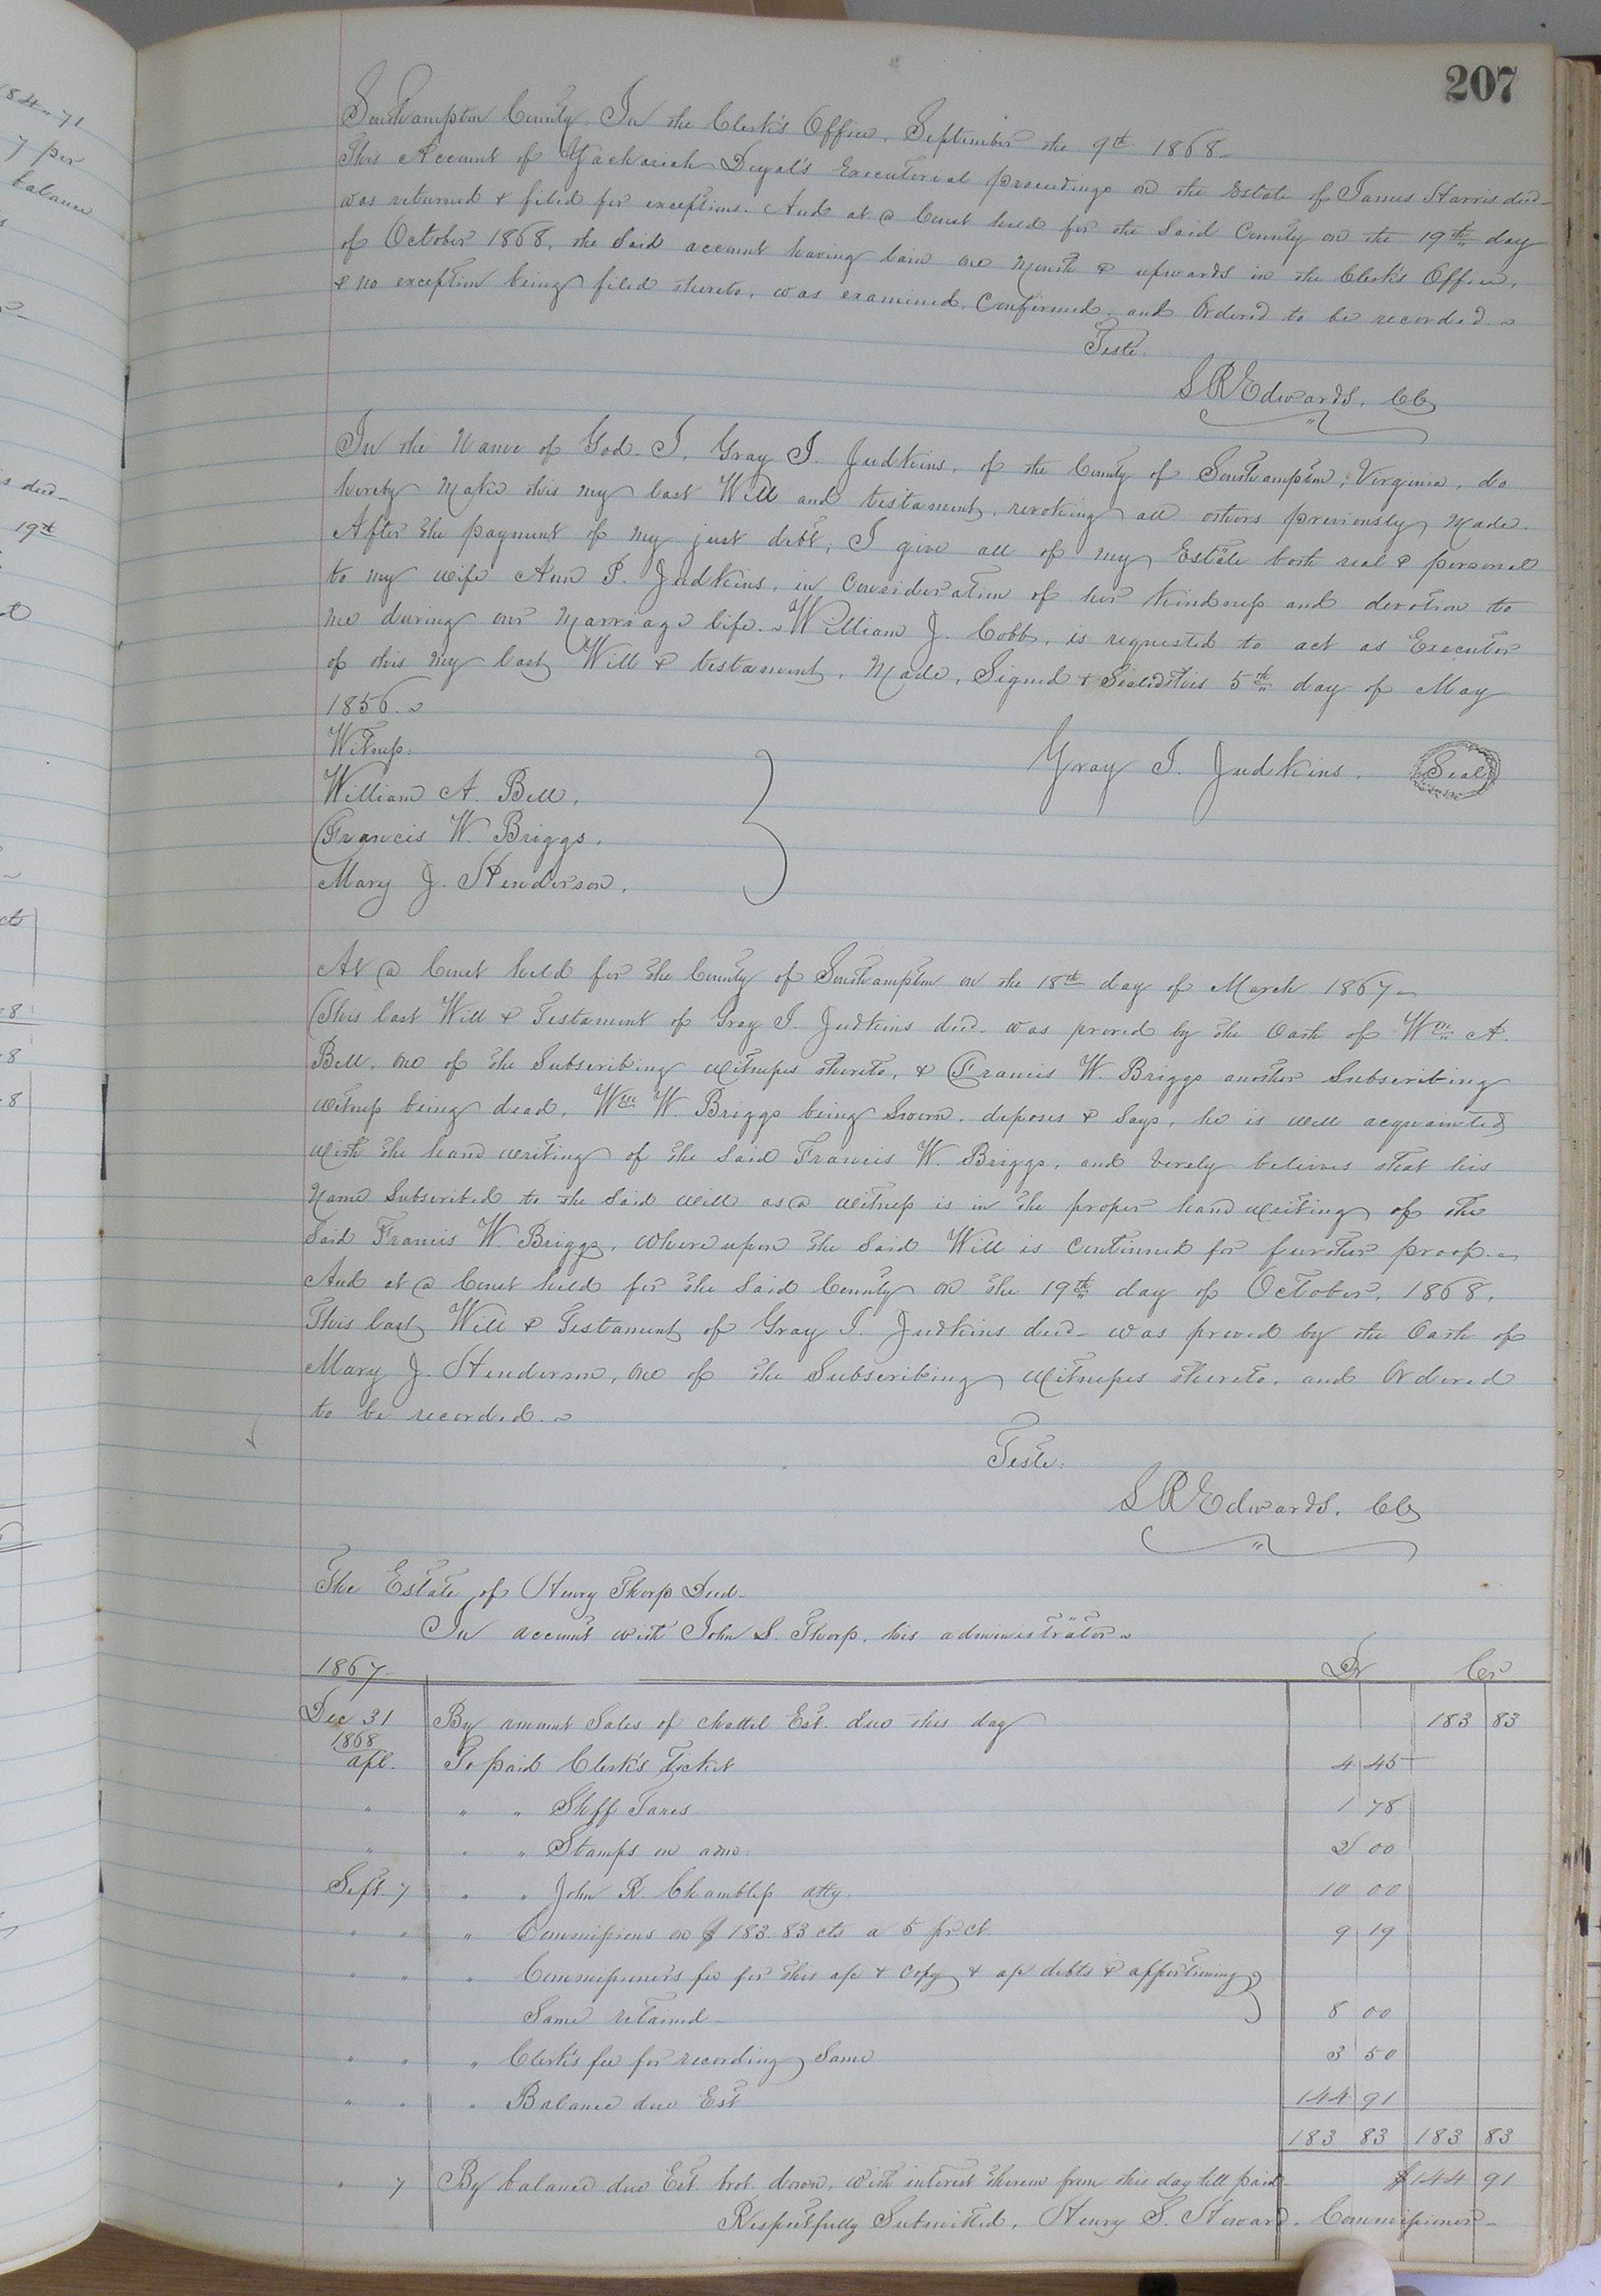 207
Southampton County. In the Clerk's Office, September the 9th 1868
This Account of Zachariah Deyal's Executorial proceedings on the Estate of James Harris decd
was returned & filed for exceptions. And at a Court held for the said County on the 19th day
of October 1868, the said account having lain one month & upwards in the Clerk's Office,
& no exception being filed thereto, was examined, confirmed, and Ordered to be recorded.
Teste.
S R Edwards, CC
In the Name of God. I, Gray I. Judkins, of the County of Southampton, Virginia, do
hereby make this my last Will and testament, revoking all others previously made.
After the payment of my just debt, I give all of my Estate both real & personal
to my wife Ann P. Judkins, in consideration of her kindness and devotion to
me during our marriage life. William J. Cobb, is requested to act as Executor
of this my last Will & testament. Made, Signed & Sealed this 5th day of May
1856.
Witness.
William A. Bell,
Francis W. Briggs.
Mary J. Henderson.
Gray I. Judkins. Seal
At a Court held for the County of Southampton on the 18th day of March 1867
This last Will & Testament of Gray I. Judkins decd. was proved by the Oath of Wm A.
Bell, one of the subscribing witnesses thereto, & Francis W. Briggs another subscribing
witness being dead, Wm W. Briggs being sworn, deposes & says, he is well acquainted
with the hand writing of the said Francis W. Briggs, and verely believes that his
name subscribed to the said will as a witness is in the proper hand writing of the
said Francis W. Briggs, whereupon the said Will is continued for further proof.
And at a Court held for the said County on the 19th day of October, 1868,
This last Will & Testament of Gray I. Judkins decd was proved by the Oath of
Mary J. Henderson, one of the subscribing witnesses thereto, and Ordered
to be recorded.
Teste:
S R Edwards, CC
The Estate of Henry Thorp Decd
In account with John S. Thorp, his administrator
1867 Dr Cr
Dec 31 By amount Sales of chattel Est. due this day 183 83
1868
apl. To paid Clerk's Ticket 4 45
" " " Shff Taxes 1 78
" " " Stamps on adm. 2 00
Sept. 7 " " John R. Chambliss atty. 10 00
" " " Commissions on $183.83 cts a 5 pr ct. 9 19
" " " Commissioner's fee for this a/c & copy & a/c debts & apportioning
Same retained 8 00
" " " Clerk's fee for recording same 3 50
" " " Balance due Est 144 91
183 83 183 83
" 7 By balance due Est. brot. down, with interest thereon from this day till paid $144 91
Respectfully Submitted, Henry S. Howard, Commissioner